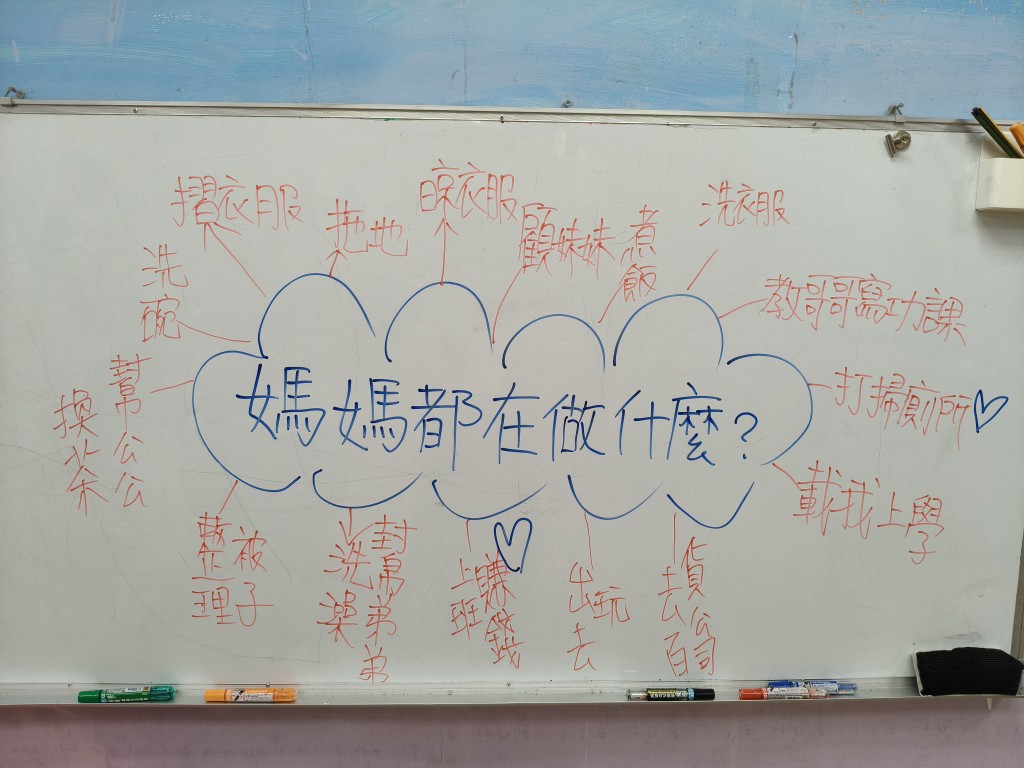 摺衣服
拖地
晾衣服
顧妹妹
煮飯
洗衣服
洗碗
教哥哥寫功課
幫公公
換茶
媽媽都在做什麼?
打掃廁所
載我上學
整理
被子
幫弟弟
洗澡
上班
賺錢
出去
玩
去百
貨公司